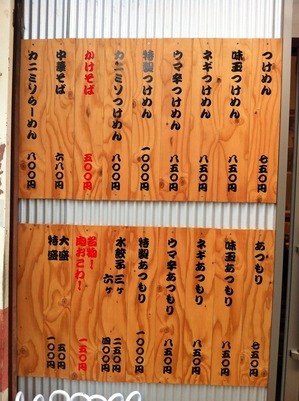 つけめん 七五〇円
味玉つけめん 八五〇円
ネギつけめん 八五〇円
ウマ辛つけめん 八五〇円
特製つけめん 一〇〇〇円
カニミソつけめん 八〇〇円
かけそば 五〇〇円
中華そば 六八〇円
カニミソらーめん 八〇〇円
あつもり 七五〇円
味玉あつもり 八五〇円
ネギあつもり 八五〇円
ウマ辛あつもり 八五〇円
特製あつもり 一〇〇〇円
水餃子 三ヶ 二五〇円
六ヶ 四〇〇円
名物！
肉おこわ！ 一五〇円
大盛 五〇円
特盛 一〇〇円